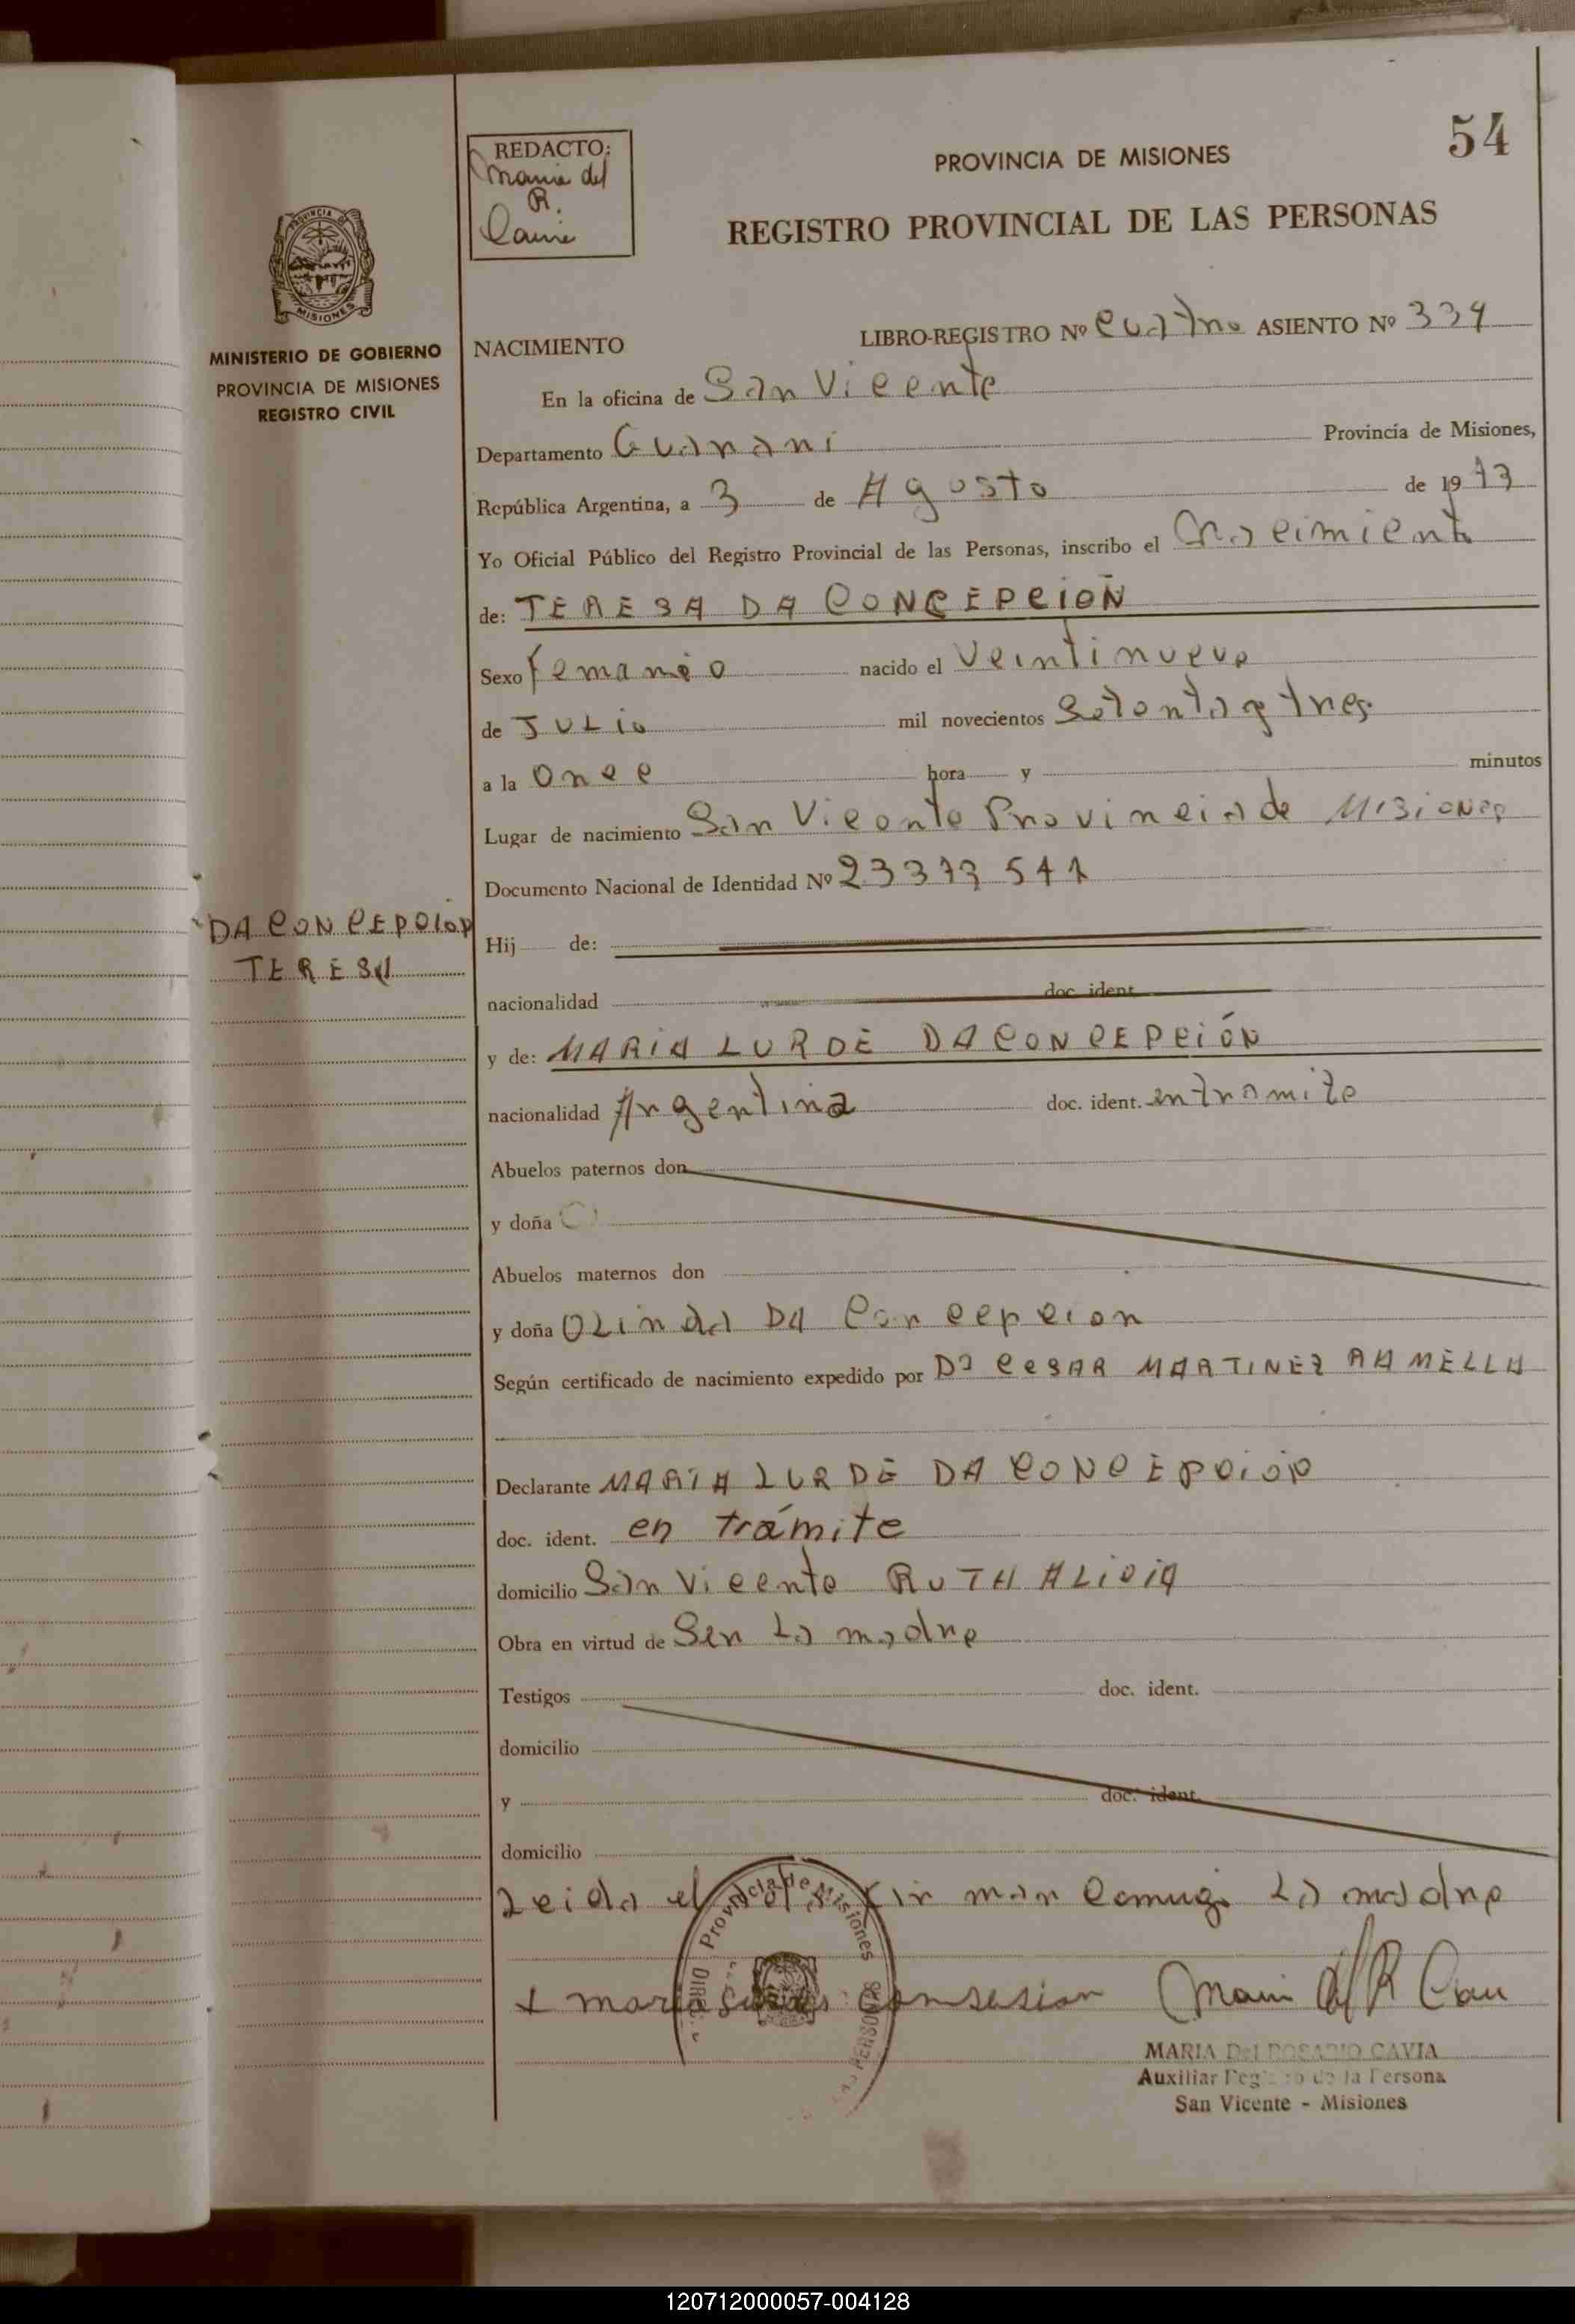 54
REDACTO:
Maria del
R.
Cavia
PROVINCIA DE MISIONES
REGISTRO PROVINCIAL DE LAS PERSONAS
PROVINCIA DE MISIONES
MINISTERIO DE GOBIERNO
PROVINCIA DE MISIONES
REGISTRO CIVIL
NACIMIENTO LIBRO-REGISTRO Nº cuatro ASIENTO Nº 334
En la oficina de San Vicente
Departamento Guarani Provincia de Misiones,
República Argentina, a 3 de Agosto de 1973
Yo Oficial Público del Registro Provincial de las Personas, inscribo el Nacimiento
de: TERESA DA CONCEPCION
Sexo femanio nacido el veintinueve
de JULio mil novecientos Setenta y tres
a la once hora y minutos
Lugar de nacimiento San Vicente Provincia de Misiones
Documento Nacional de Identidad Nº 23373541
DA CONCEPCION
TERESA
Hij de:
nacionalidad doc. ident.
y de: MARIA LURDE DA CONCEPCIÓN
nacionalidad Argentina doc. ident. en tramite
Abuelos paternos don
y doña
Abuelos maternos don
y doña OLinda DA Concepcion
Según certificado de nacimiento expedido por Dr CESAR MARTINEZ RAMELLA
Declarante MARIA LURDE DA CONCEPCION
doc. ident. en trámite
domicilio San Vicente RUTA
Obra en virtud de Ser La madre
Testigos doc. ident.
domicilio
y doc. ident.
domicilio
Leida el firman conmigo La madre
Provincia de Misiones
MARIA Del ROSARIO CAVIA
Auxiliar Registro de la Persona
San Vicente - Misiones
120712000057-004128